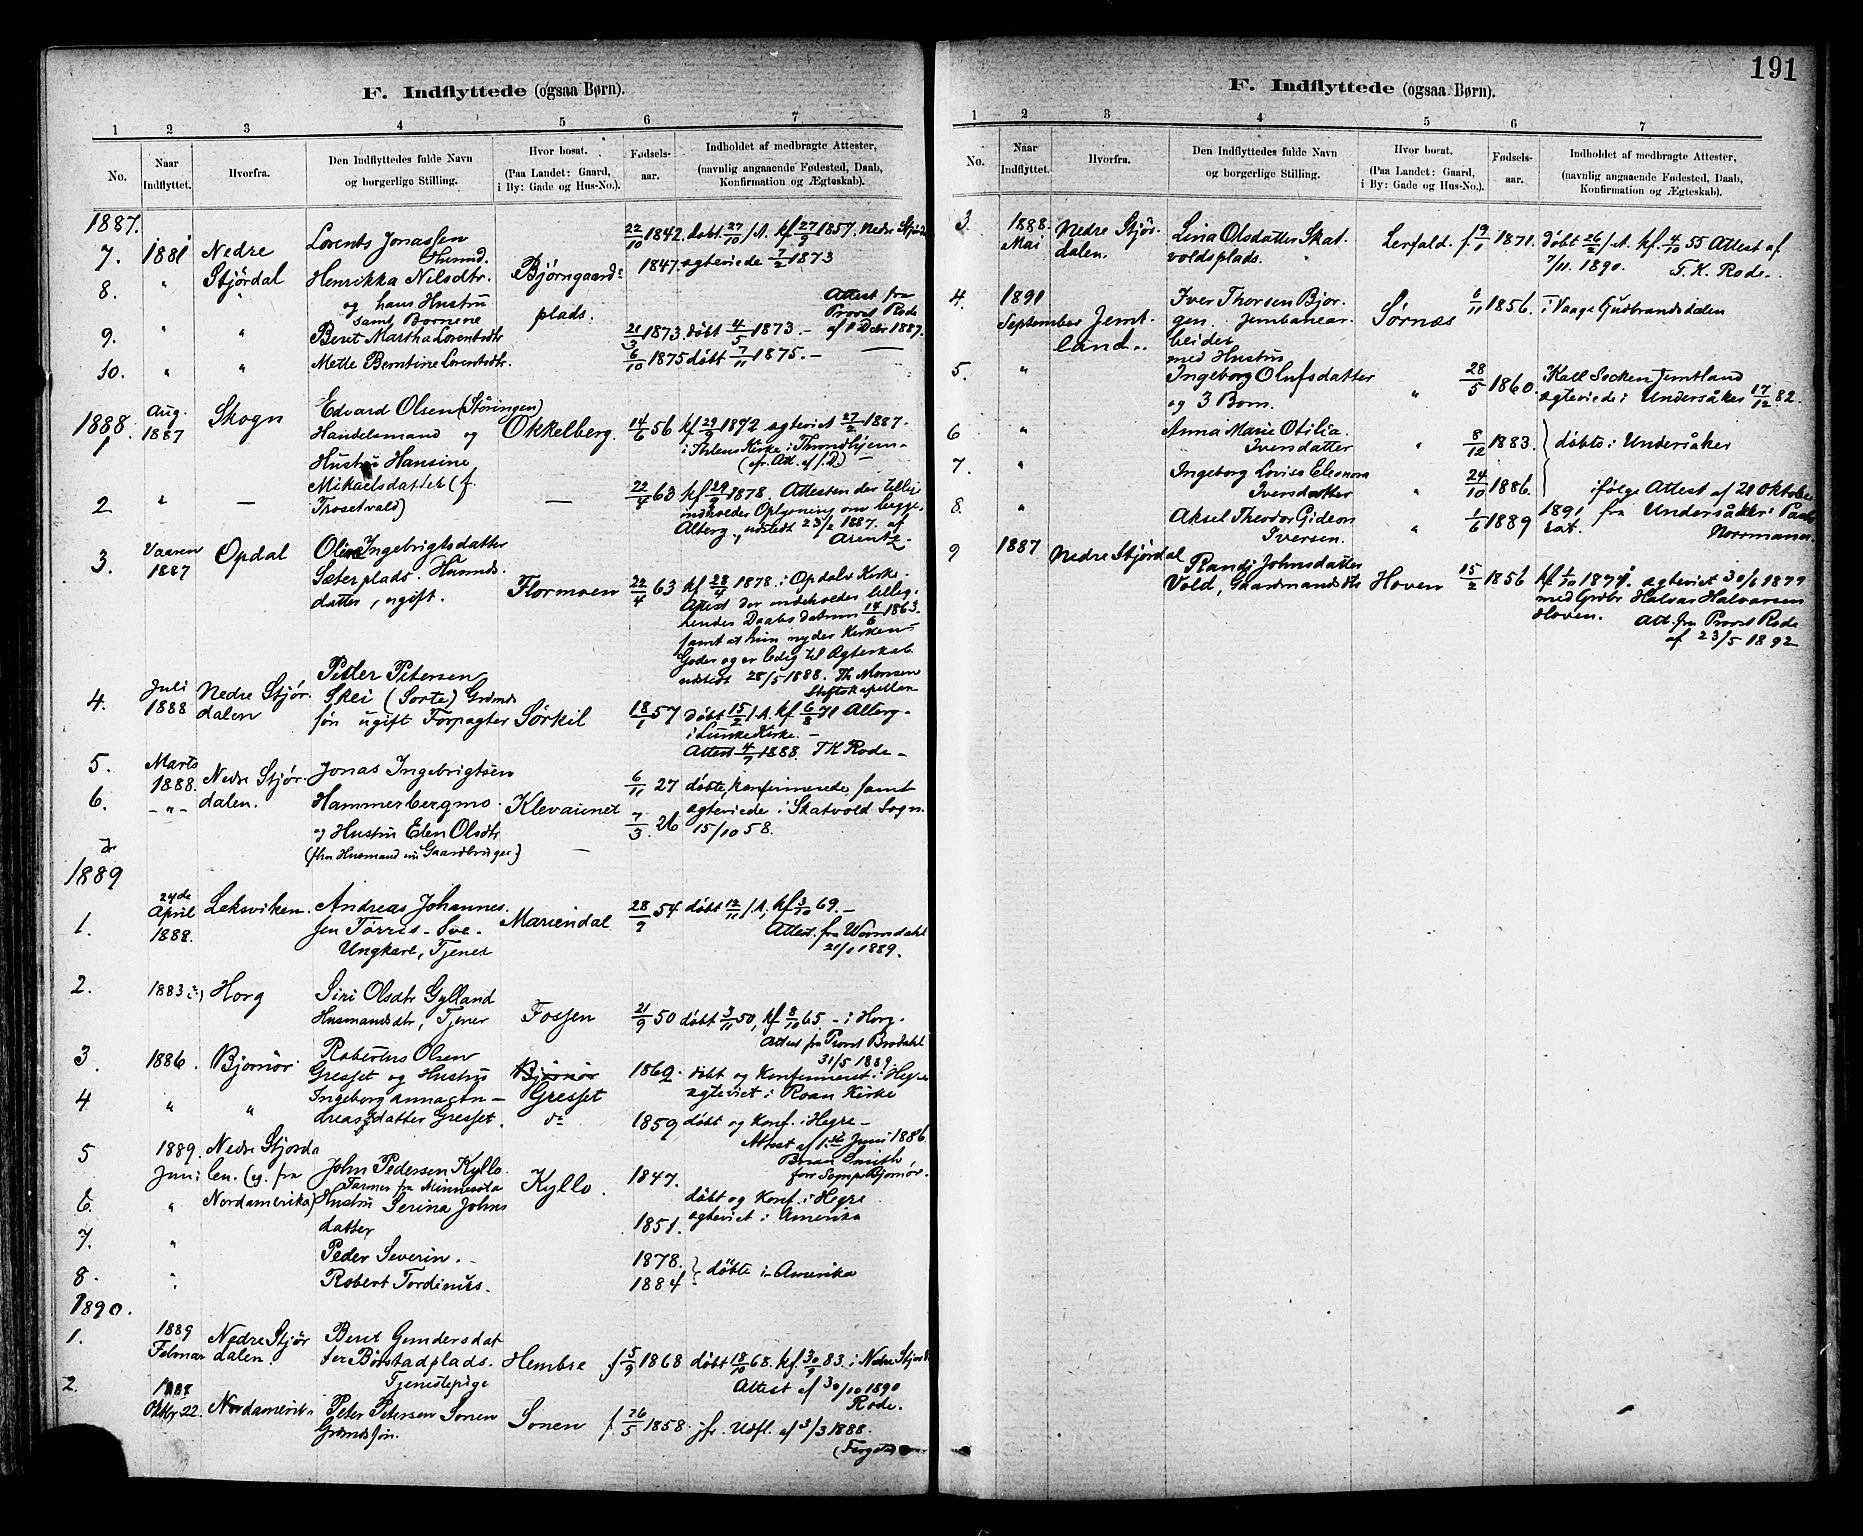 191
F. Indflyttede (ogsaa Børn).
1 2 3 4 5 6 7
No. Naar Indflyttet. Hvorfra. Den Indflyttedes fulde Navn og borgerlige Stilling. Hvor bosat. (Paa Landet: Gaard, i By: Gade og Hus-No.). Fødsels-aar. Indholdet af medbragte Attester, (navnlig angaaende Fødested, Daab, Konfirmation og Ægteskab).
1887.
7. 1881 Nedre Lorents Jonassen 22/10 1842. døbt 27/10 /A. kf 27/9 1857. Nedre Stjørd
Husmd.
8. " Stjørdal Henrikka Nilsdtr. Bjørngaards 1847. ægteviede 7/2 1873
og hans Hustru plads. Attest fra
samt Børnene Provst Rode
9. " " Berit Martha Lorentsdtr 21/3 1873 døbt 4/5 1873. – af 1 Debr 1887.
10. " " Mette Berntine Lorentsdtr. 6/10 1875 døbt 7/11 1875. –
1888. Aug. 1887 Skogn Edvard Olsen (Støringen)
1 Handelsmand og Okkelberg. 14/6 56 kf 29/9 1872 ægteviet 27/2 1887.
Hustru Hansine i Ihlens Kirke i Throndhjem –
Mikaelsdatter (f. (cfr. Att. af f. D) –
2 " — Trosetvald) — 22/4 63 kf 29/9 1878. Attesten der tillige
indholder Oplysning om begges
Alterg., udstedt 23/2 1887. af
Arentz.
3. Vaaren 1887 Opdal Oline Ingebrigtsdatter
Sæterplads. Husmds. Flormoen 22/4 63 kf 28/4 1878. i Opdals Kirke.
datter, ugift. Attest der indeholder tillige
hendes Daabsdatum 14/6 1863.
samt at hun nyder Kirkens
Goder og er ledig til Ægteskab
udstedt 28/5 1888. Th Monsen
Stiftskapellan
4. Juli 1888 Nedre Stjør- Petter Petersen
dalen Skei (Sorte) Grdmds
søn ugift Forpagter Sørkil 18/1 57 døbt 15/2 /A. kf 6/8 71 Alterg.
i Lunke Kirke. –
Attest 4/7 1888. TK Rode –
5. Marts 1888. Nedre Stjør- Jonas Ingebrigtsen 6/11 27 døbte, konfirmerede samt
6. –"– dalen. Hammerbergmo. Klevaunet ægteviede i Skatvold Sogn
og Hustru Elen Olsdtr 7/3. 26 15/10 58.
(før Husmand nu Gaardbruger) —
1889
1. 24de April 1888. Leksviken. Andreas Johannes- Mariendal 28/9 54 døbt 12/11 /A. kf 3/10 69. –
sen Tørris-Sve- Attest. fra Wormdahl
Ungkarl, Tjener 21/1 1889.
2. 1883 Horg Siri Olsdtr Gylland
Husmandsdtr, Tjener Fossen 21/9 50 døbt 3/11 50, kf 8/10 65. – i Horg.
Attest fra Provst Brodahl
31/5 1889.
3 1886. Bjørnør Robertus Olsen Bjørnør 1862. døbt og Konfirmeret i Hegre
Gresset og Hustru Gresset ægteviet i Roan Kirke
4 " " Ingeborganna An-
dreasdatter Gresset. do 1859 døbt og Konf. i Hegre –
Attest af 1ste Juni 1886.
Brun Smith
for Sognepr. Bjørnør.
5 1889. Nedre Stjørda
Juni len. (og fra John Pedersen Kyllo. Kyllo. 1847.
Farmer fra Minnesota døbt og Konf. i Hegre
6. " Nordamerika) Hustru Serina Johns 1851. ægteviet i Amerika
datter
7. " Peder Severin. – 1878.
8. " Robert Tordinius. 1884 } døbte i Amerika
1890.
1. 1889 Februar Nedre Stjør Berit Gundersdat
dalen. ter Børstadplads. Hembre f 5/9 1868 døbt 18/10 68. kf. 30/9 83. i Nedre Stjørd
Tjenestepige Attest af 30/10 1890
Rode.
2. Oktbr 22. Nordamerik Peter Petersen Sonen Sonen f 26/5 1858. jfr. Udfl. af 3/3 1888.
Grdmdssøn.
F. Indflyttede (ogsaa Børn).
1 2 3 4 5 6 7
No. Naar Indflyttet. Hvorfra. Den Indflyttedes fulde Navn og borgerlige Stilling. Hvor bosat. (Paa Landet: Gaard, i By: Gade og Hus-No.). Fødsels-aar. Indholdet af medbragte Attester, (navnlig angaaende Fødested, Daab, Konfirmation og Ægteskab).
3. 1888 Mai Nedre Stjør- Lina Olsdatter Skat- Lerfald. f 19/1 1871. døbt 26/2 /A. kf. 4/10 55 Attest af
dalen. voldsplads. 7/11. 1890. T. K. Rode.
4. 1891 Iver Thorsen Bjor- 6/11 1856. i Vaage Gudbrandsdalen
September Jemt- gen. Jernbanear- Sørnæs
land. beider
med Hustru
5. " Ingeborg Olufsdatter 28/5 1860. Kall Socken Jemtland
og 3 Børn. " ægteviede i Undersåker 17/12 82.
6 " Anna Marie Otilia
Iversdatter " 8/12 1883. } døbte i Undersåker
7. " Ingeborg Lovise Eleonora
Iversdatter " 24/10 1886. ifølge Attest af 21 Oktober
8. " Aksel Theodor Gideon 1/6 1889 1891 fra Undersåker Pasto
Iversen. " rat. Norrmann.
9 1887 Nedre Stjørdal Randi Johnsdatter
Vold, Gaardmandsdtr Hoven 15/2 1856 kf 1/10 1871. ægteviet 30/6 1879
med Grdbr Halvar Halvarsen
Hoven. Att. fra Provst Rode
af 23/5 1892